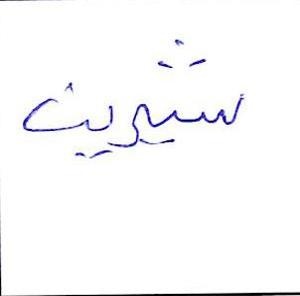 شيرين